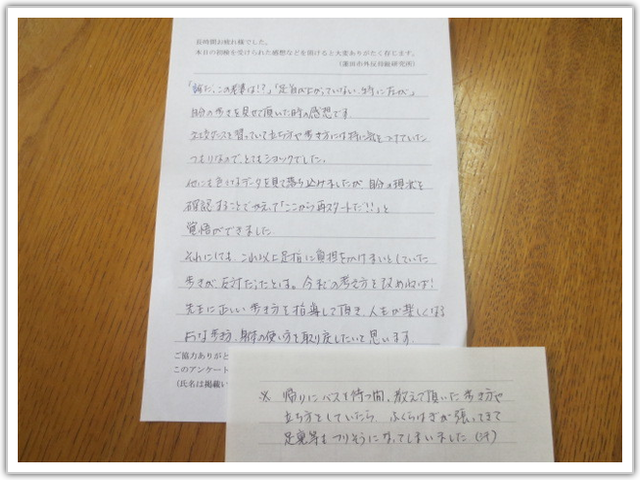 長時間お疲れ様でした。
本日の初検を受けられた感想などを頂けると大変ありがたく存じます。
(蓮田市外反母趾研究所)
「誰だ、この老婆は!?」「足首が上がっていない、特に左が」
自分の歩きを見せて頂いた時の感想です
社交ダンスを習っていて立ち方や歩き方には特に気をつけていた
つもりなので、とてもショックでした。
他にも色々なデータを見て落ち込けましたが自分の現状を
確認することでかえって「ここから再スタートだ!!」と
覚悟ができました
それにしても、これ以上足指に負担をかけまいとしていた
歩きが反対だったとは。今までの考え方を改めねば!
先生に正しい歩き方を指導して頂き、人生が楽しくなる
ような歩き方、身体の使い方を取り戻したいと思います。
ご協力ありがと
このアンケート
(氏名は掲載い
※ 帰りにバスを待つ間、教えて頂いた歩き方や
立ち方をしていたら ふくらはぎが張ってきて
足裏等もつりそうになってしまいました